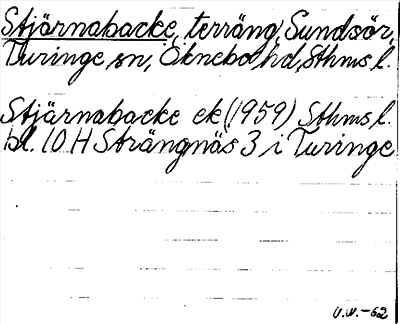 Stjärnabacke, terräng, Sundsör,
Turinge sn, Öknebo hd, Sthms l.
Stjärnabacke ek (1959) Sthms l.
bl. 10 H Strängnäs 3 i Turinge
U.W.-62